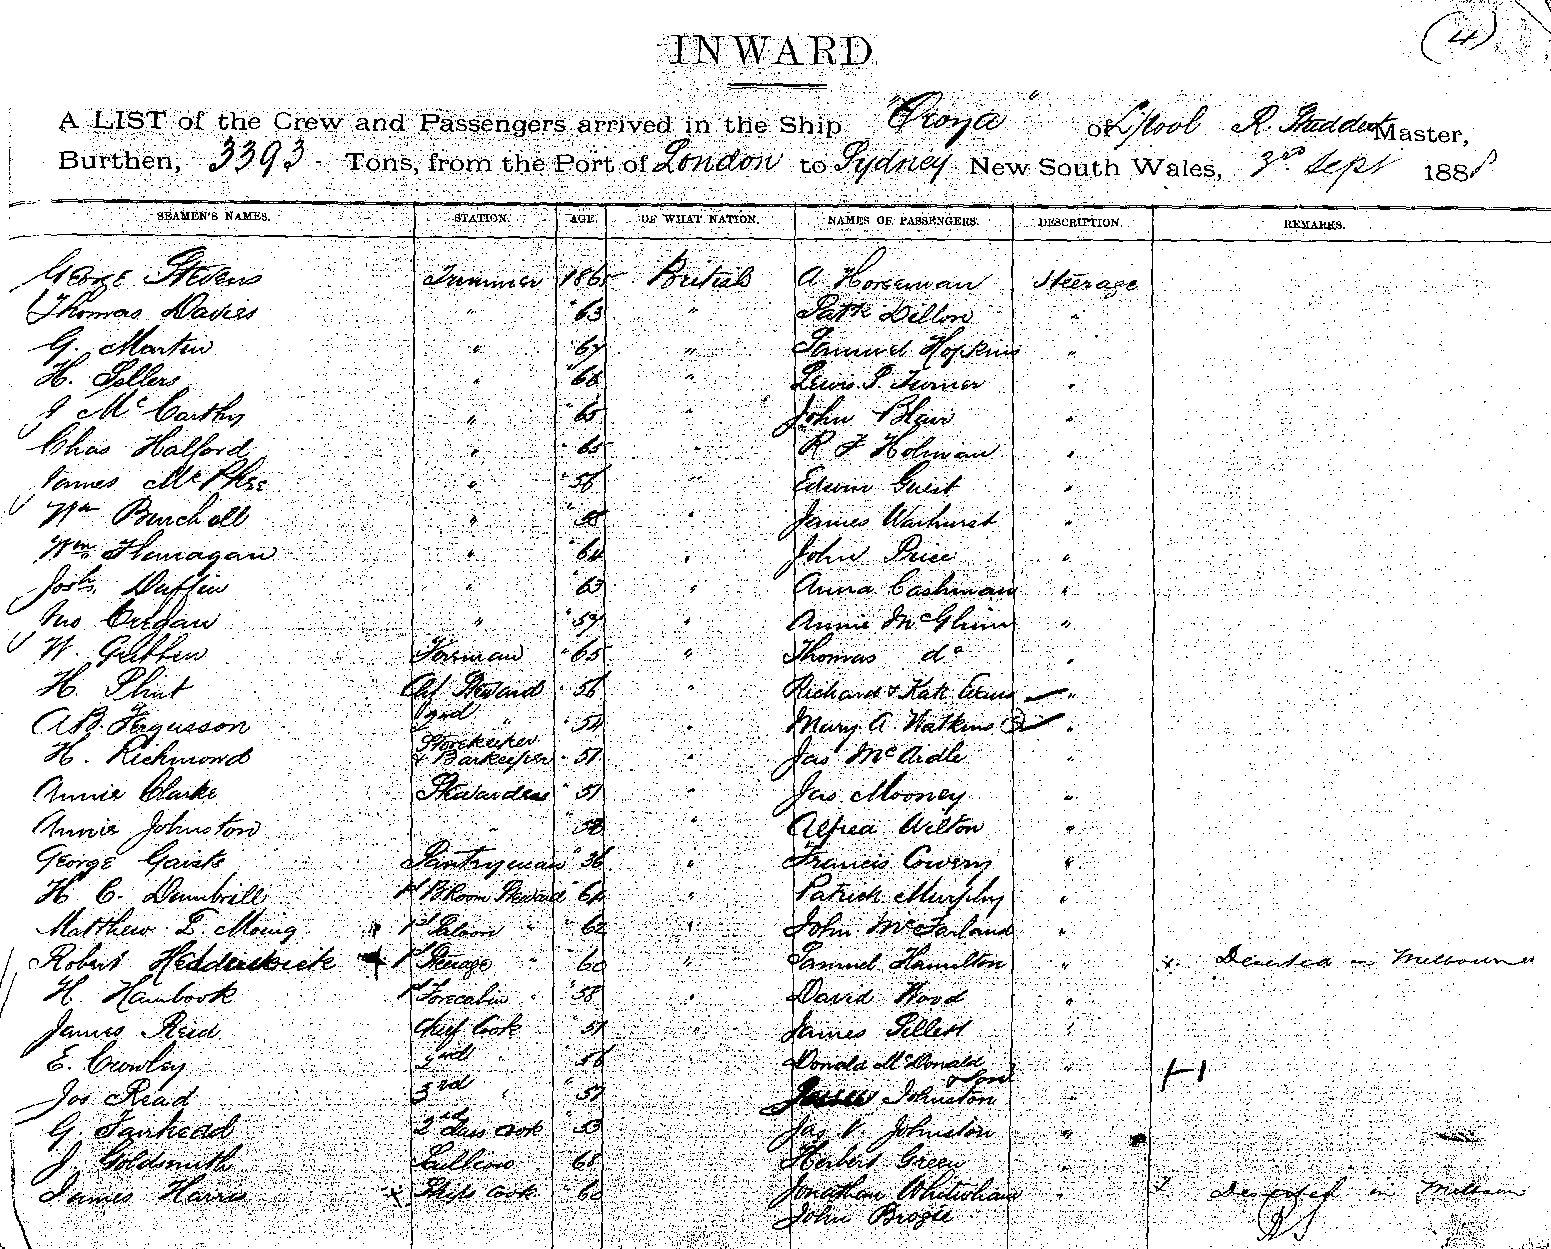 (4)
INWARD
A LIST of the Crew and Passengers arrived in the Ship "Oroya" of L'pool R. Studdert Master,
Burthen, 3393 Tons, from the Port of London to Sydney New South Wales, 3rd Sept 1888
SEAMEN'S NAMES. STATION. AGE. OF WHAT NATION. NAMES OF PASSENGERS. DESCRIPTION. REMARKS.
George Stevens Trimmer 1865 British A Horseman Steerage
Thomas Davies " " 63 " Patk Dillon "
G. Martin " 67 " Samuel Hopkins "
H. Sellers " " 66 " Lewis. S. Turner "
J McCarthy " " 65 " John Blair "
Chas Halford " " 65 " R F Holman "
James McPhee " " 56 " Edwin Guest "
Wm Burchell " " 58 " James Warhurst "
Wm Flannagan " " 64 " John Price "
Josh. Duffin " " 63 " Anna Cashman "
Jno " " 57 " Annie McGlinn "
W. Foreman " 65 " Thomas do "
H. Flint Chf Steward " 56 " Richard & Kate "
A.B. Fergusson 2nd " " 54 " Mary A Watkins "
H. Richmond Storekeeper & Barkeeper " 51 " Jas McArdle "
Annie Clarke Stewardess " 51 " Jas Mooney "
Annie Johnston " " 58 " Alfred Wilton "
George Pantryman " 36 " Francis Cowery "
H C. Dumbrill 1st B Room Steward " 64 " Patrick Murphy "
Matthew E. 1st Saloon " " 62 " John McFarland "
Robert 1st Steerage " " 60 " Samuel Hamilton " x Deserted in Melbourne
H. Hambrook 1st Forecabin " " 58 " David Wood "
James Reid Chef Cook " 51 James "
E. Crowley 2nd " " 56 Donald McDonald "
Jos Read 3rd " " 51 Johnston "
G. Fairhead 2nd Cook " 53 Jas V. Johnston "
J Goldsmith Scullion 68 Herbert Green "
James Harris x Ships Cook " 60 Jonathan Whitwham " x Deserted in Melbourn
John Brogie